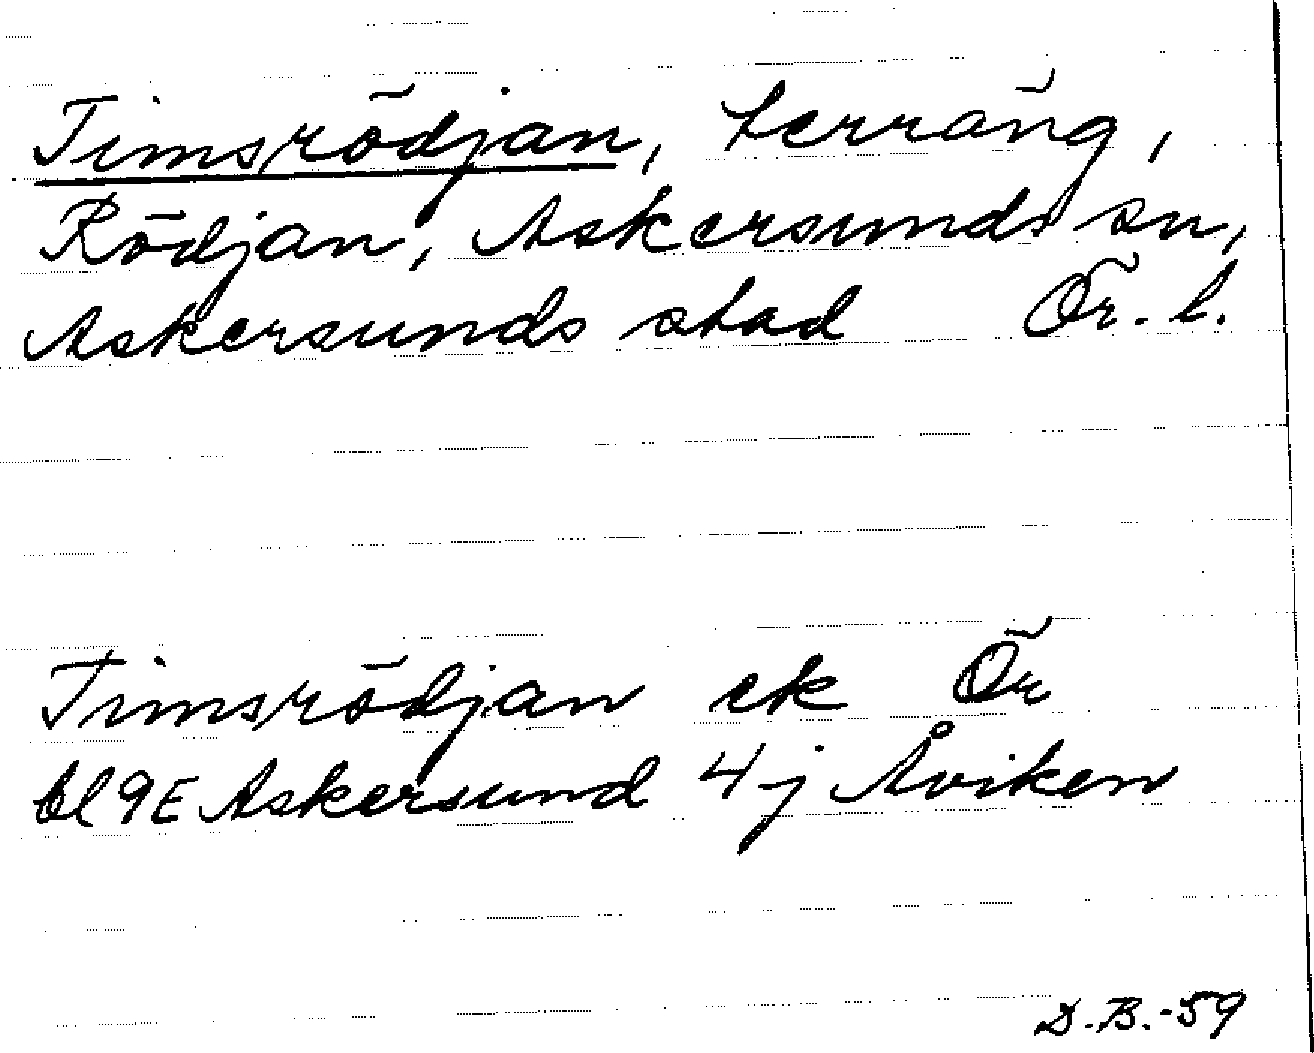 Timsrödjan, terräng,
Rödjan, Askersunds sn,
Askersunds stad Ör. l.
Timsrödjan ek Ör
bl 9E Askersund 4j Åviken
D.B.-59